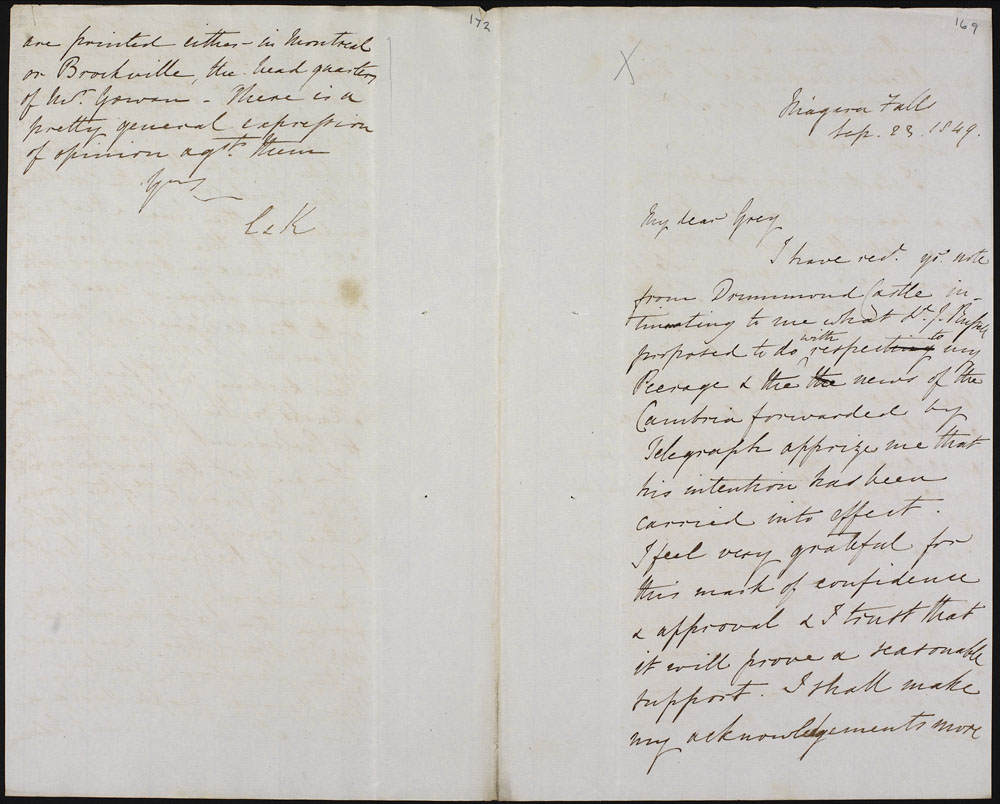 172
are printed either in Montreal
or Brockville, the head quarters
of Mr. Gowan - There is a
pretty general expression
of opinion agst. them
Yrs
E & K
169
X
Niagara Falls
Sep. 23. 1849.
My dear Grey
I have recd. yr. note
from Drummond Castle in-
timating to me what Ld. J. Russell
proposed to do with respecting to my
Peerage & the the news of the
Cambria forwarded by
Telegraph apprize me that
his intention has been
carried into effect.
I feel very grateful for
this mark of confidence
& approval & I trust that
it will prove a seasonable
support. I shall make
my acknowledgements more